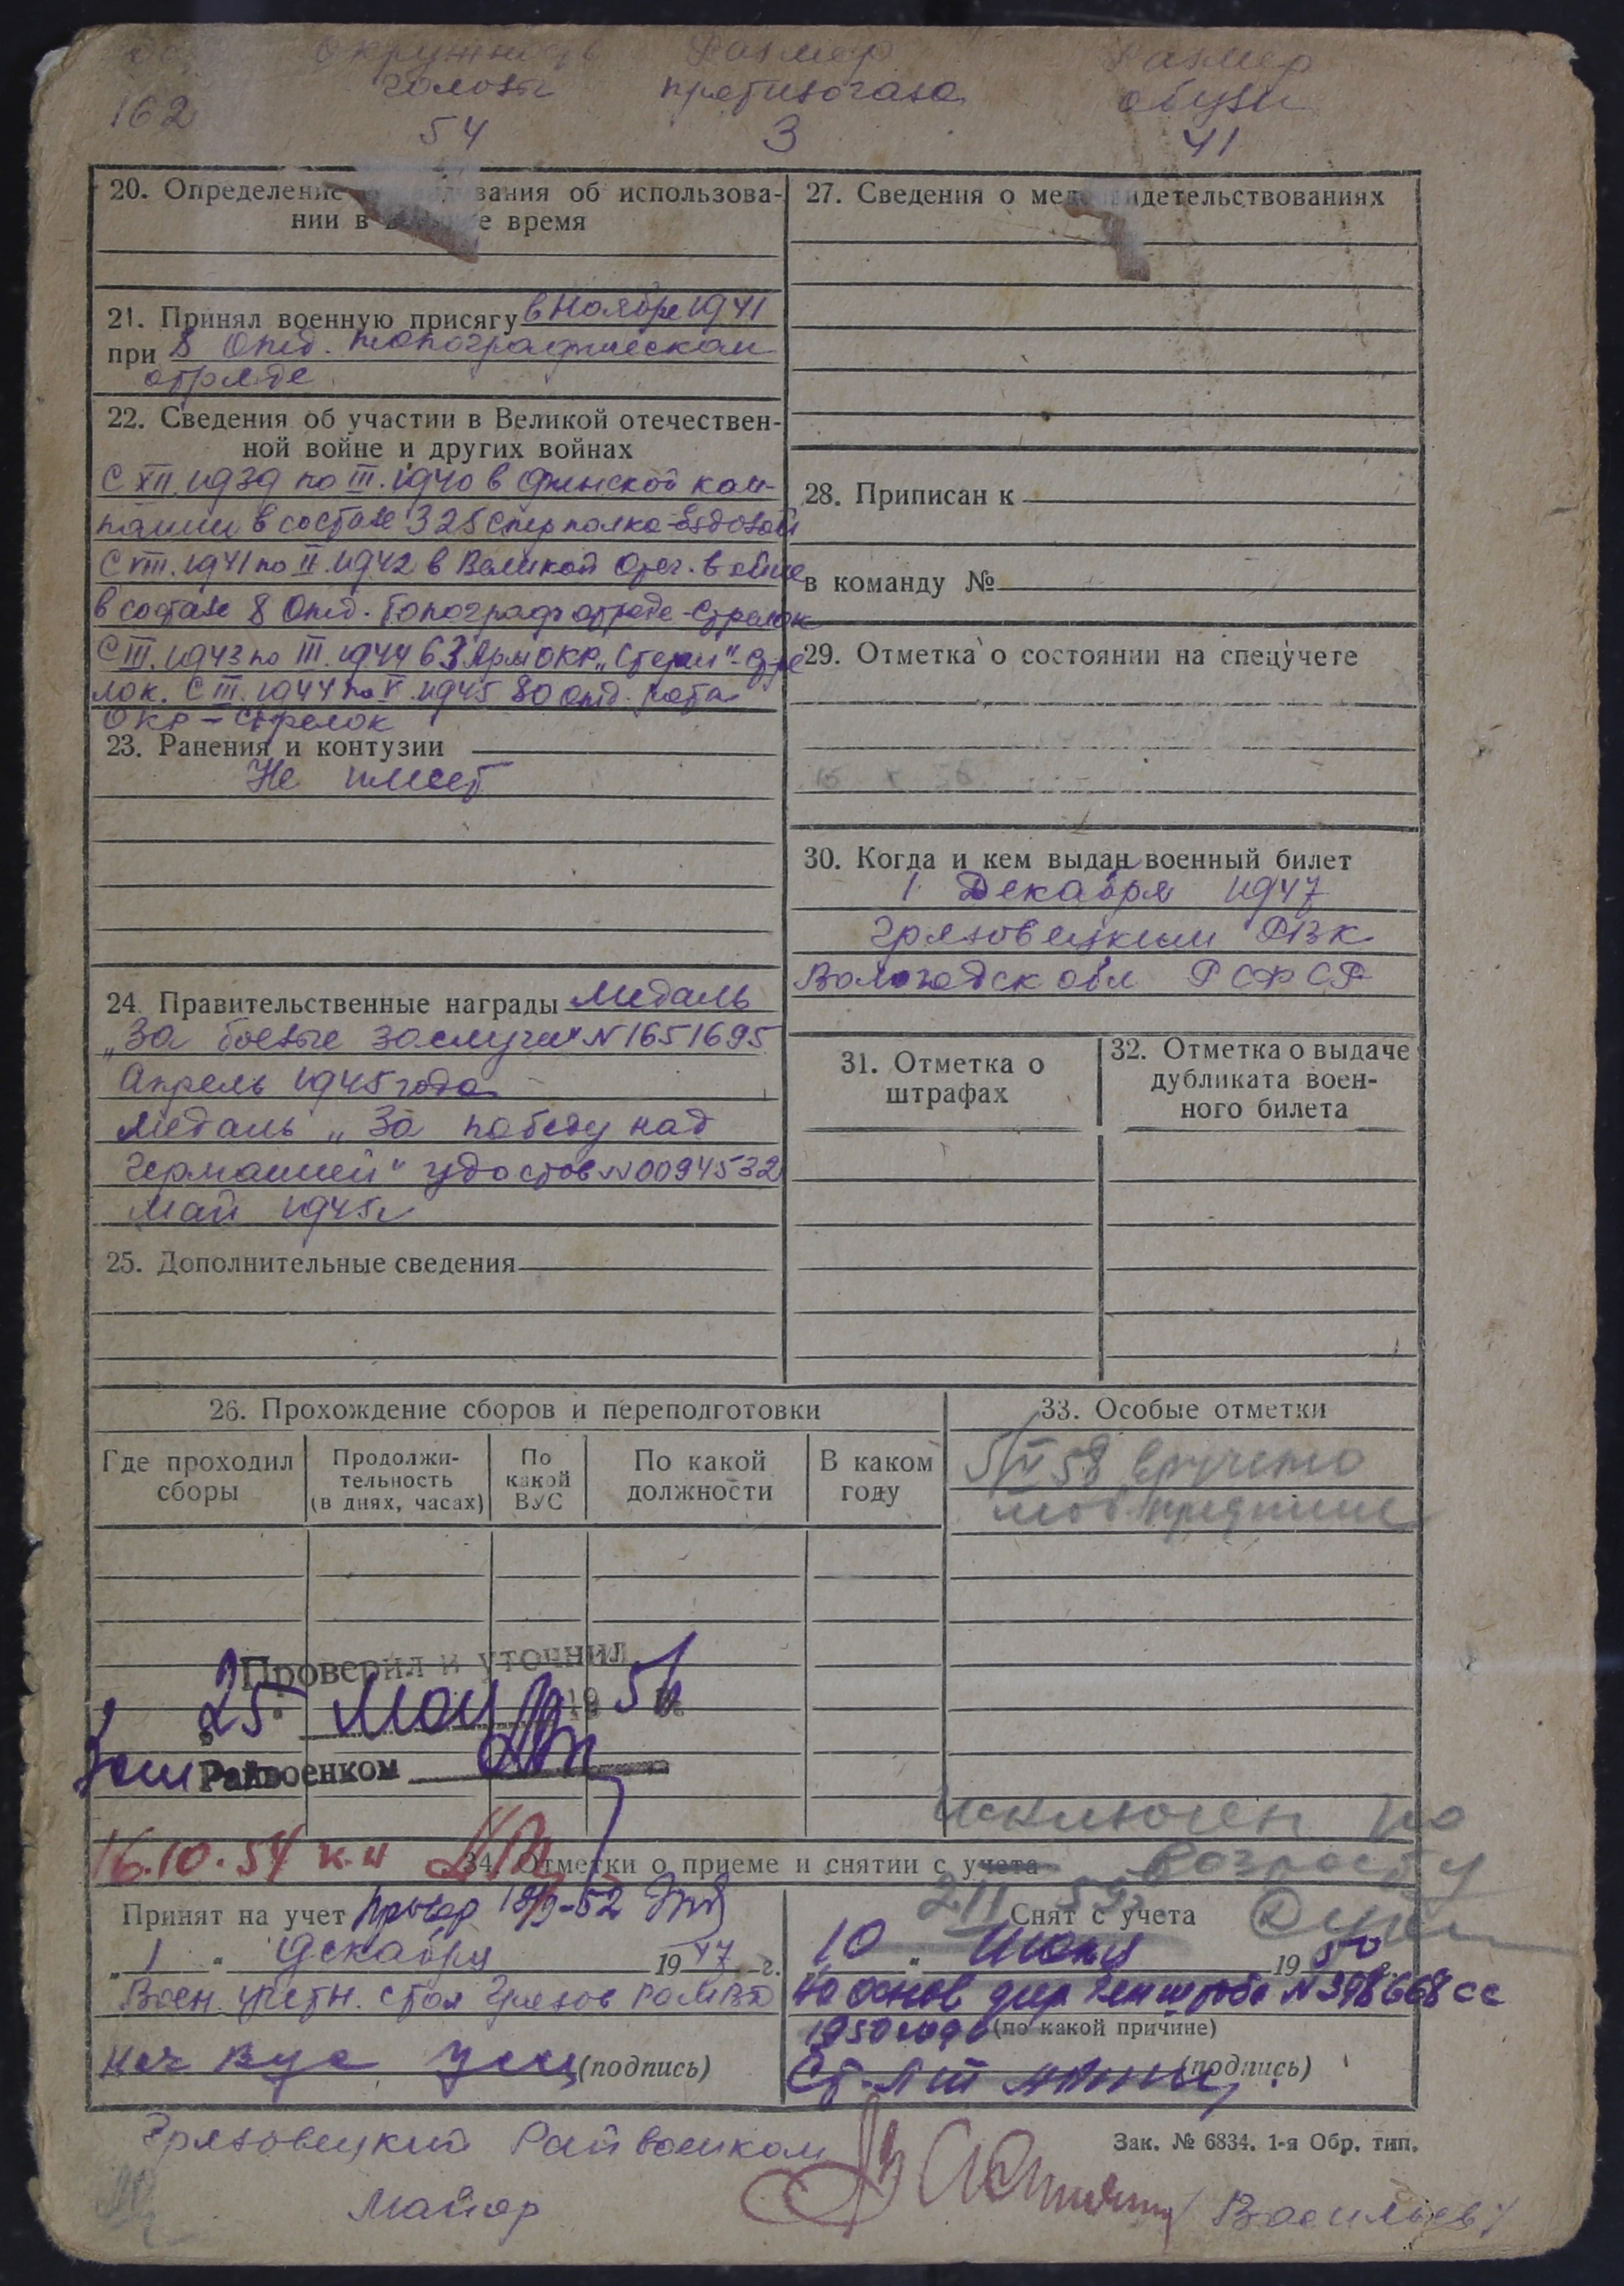 окружность Размер Размер
головы противогаза обуви
162 54 3 41
20. Определение вания об использова-
нии в е время
21. Принял военную присягу в Ноябре 1941
при 8 Отд. топографическом
отряде
22. Сведения об участии в Великой отечествен-
ной войне и других войнах
С XII.1939 по III.1940 в Финской кам-
пании в составе 325 Стр полка-Ездовой
С VIII.1941 по II.1942 в Великой Отеч. войне
в составе 8 Отд. Топограф отряде-Стрелок
С III.1943 по III.1944 63 Арм ОКР-Стре
лок. С III.1944 по V.1945 80 отд. рота
ОКР - Стрелок
23. Ранения и контузии
Не имеет
24. Правительственные награды Медаль
„За боевые заслуги" N1651695
Апрель 1945 года
Медаль „За победу над
Германией" удостов N0094532
Май 1945г
25. Дополнительные сведения
27. Сведения о мед идетельствованиях
28. Приписан к
в команду №
29. Отметка о состоянии на спецучете
30. Когда и кем выдан военный билет
1 Декабря 1947
Грязовецким РВК
Вологодск обл РСФСР
31. Отметка о
штрафах
32. Отметка о выдаче
дубликата воен-
ного билета
26. Прохождение сборов и переподготовки
Где проходил
сборы
Продолжи-
тельность
(в днях, часах)
По
какой
ВУС
По какой
должности
В каком
году
33. Особые отметки
58 вручено
моб.
Проверил и уточнил
25 мая 19 5
Зам Райвоенком
16.10.54
исключен по
возрасту
34. Отметки о приеме и снятии с учета
Принят на учет Провер
„1" Декабря 1947 г.
Воен. учетн. стол Грязов
Нач ВУС (подпись)
Снят с учета
10 " Июня 1950
На основ дир Генштаба N 398668 сс
1950 года (по какой причине)
Ст. л-т (подпись)
Грязовецкий Райвоенком
Майор /Васильев/
Зак. № 6834. 1-я Обр. тип.